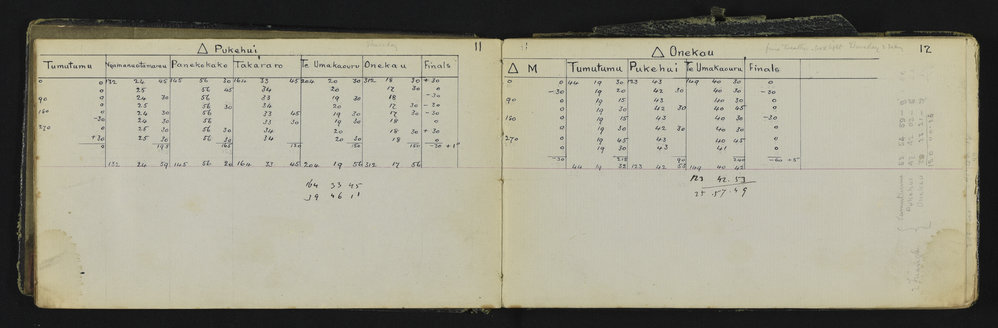 11
△ Pukehui
Thursday
Tumutumu Ngamanuotamarau Panekokako Takararo Te Umakaouru Onekau Finals
0 0 132 24 45 145 56 30 164 33 45 204 20 30 312 18 30 +30
0 25 56 45 34 20 17 30 0
90 0 24 30 56 33 19 30 18 -30
0 25 56 30 34 20 17 30 -30
180 0 24 30 56 33 45 19 30 17 30 -30
-30 24 30 56 33 30 19 30 18 0
270 0 25 30 56 30 34 20 18 30 +30
+30 25 30 56 30 34 20 30 18 0
0 195 165 150 150 150 -30 +1"
132 24 59 145 56 20 164 33 45 204 19 56 312 17 56
164 33 45
39 46 11
12
△ Onekau
△ M Tumutumu Pukehui Te Umakaouru Finals
0 0 44 19 30 123 43 149 40 30 0
-30 19 20 42 30 40 30 -30
90 0 19 15 43 40 30 0
0 19 30 42 30 40 45 0
180 0 19 15 43 40 30 -30
0 19 30 42 30 40 30 0
270 0 19 45 43 40 45 0
0 19 30 43 41 0
-30 215 90 240 -60 +5"
44 19 32 123 42 53 149 40 45
123 42 53
25 57 49
Tumutumu
Pukehui
Onekau